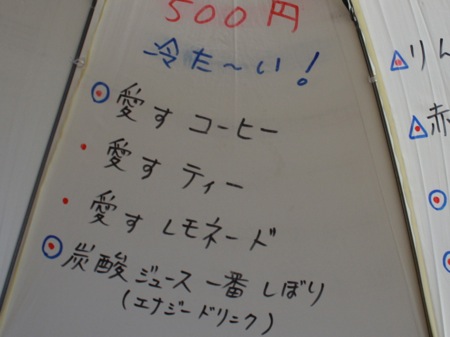 500円
冷た〜い!
愛す コーヒー
愛す ティー
愛す レモネード
炭酸 ジュース 一番 しぼり
(エナジードリンク)
りん
赤